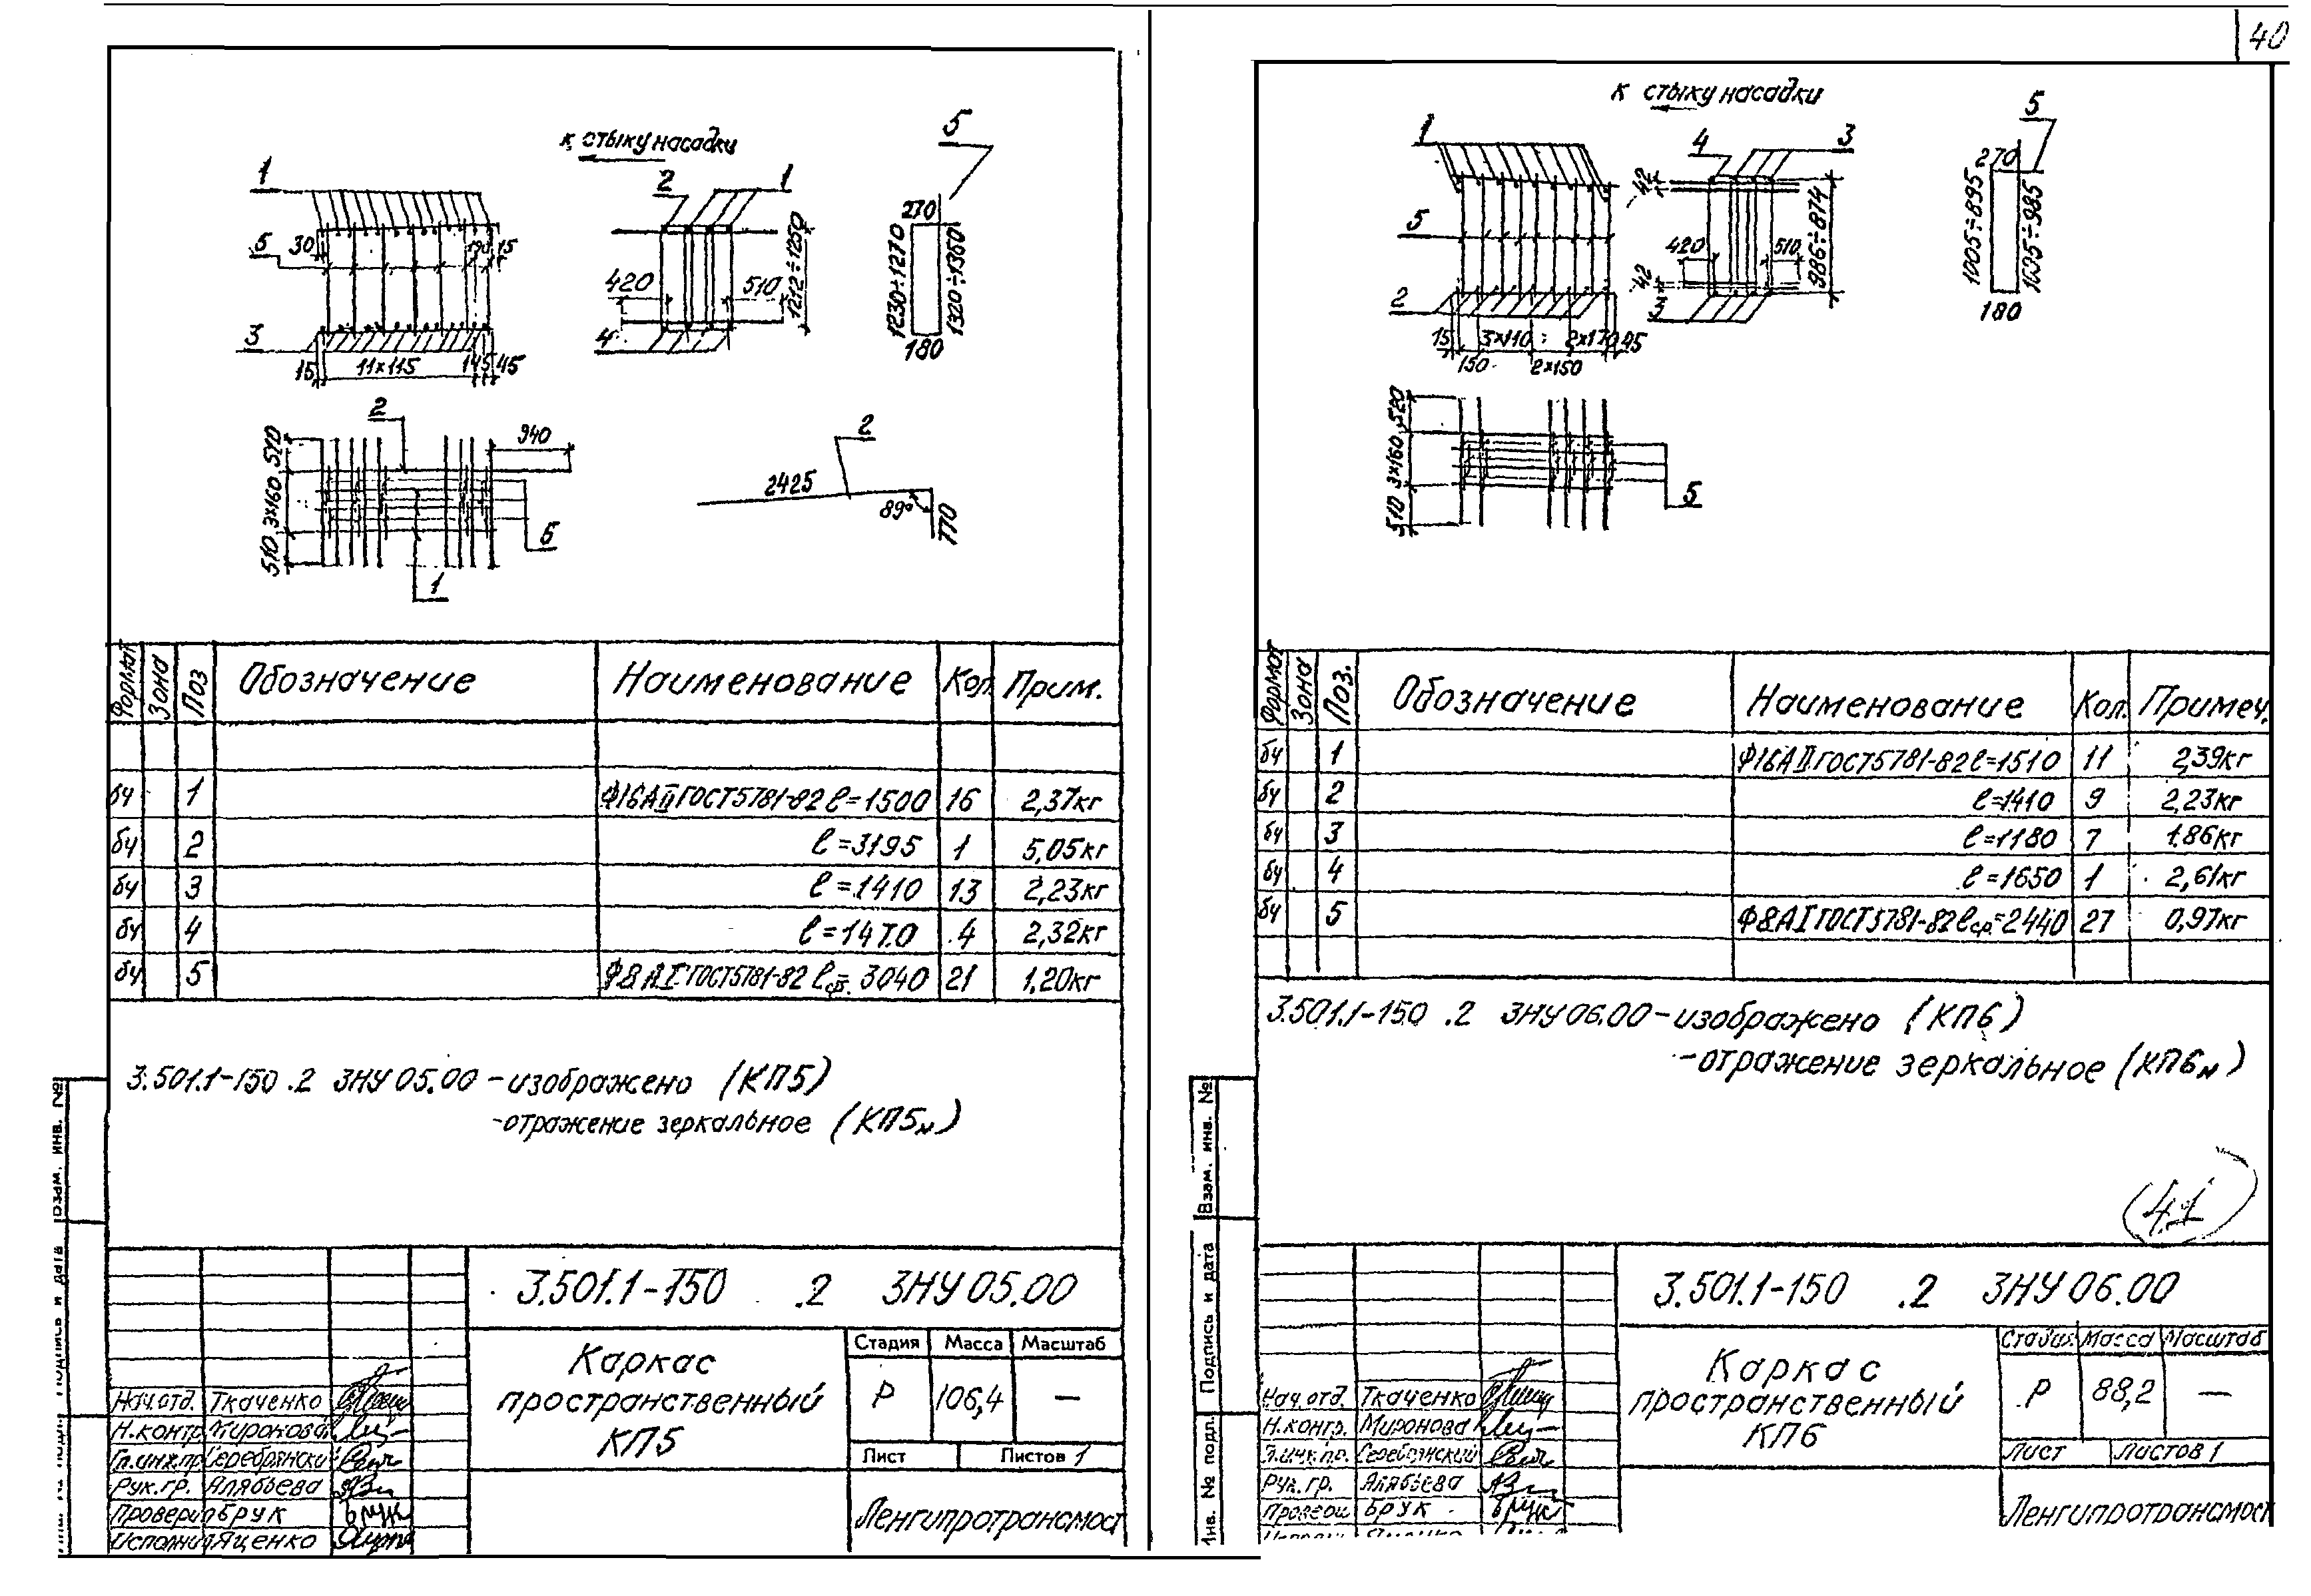 40
к стыку насадки
1
2
1
5
5
30
190
15
420
510
1212÷1250
270
1230÷1270
1320÷1360
180
3
4
15
11×115
145
45
2
940
520
3×160
510
5
1
2
2425
89°
770
Формат
Зона
Поз
Обозначение
Наименование
Кол
Прим.
бч 1 Ф16АII ГОСТ5781-82 ℓ=1500 16 2,37кг
бч 2 ℓ=3195 1 5,05кг
бч 3 ℓ=1410 13 2,23кг
бч 4 ℓ=1470 4 2,32кг
бч 5 Ф8АI ГОСТ5781-82 ℓср. 3040 21 1,20кг
3.501.1-150 .2 3НУ 05.00 - изображено (КП5)
-отражение зеркальное (КП5н)
Взам. инв. №
Подпись и дата
3.501.1-150 .2 3НУ 05.00
Каркас
пространственный
КП5
Стадия Масса Масштаб
Р 106,4 —
Лист Листов 1
Ленгипротрансмост
Нач.отд. Ткаченко
Н.контр. Миронова
Гл.инж.пр. Серебрянский
Рук.гр. Алябьева
Проверил Брук
Исполнил Яценко
к стыку насадки
1
4
3
5
5
42
420
510
986÷874
42
270
1005÷895
1095÷985
180
2
3
15
3×110
2×170
45
150
2×150
520
3×160
510
5
Формат
Зона
Поз.
Обозначение
Наименование
Кол.
Примеч.
бч 1 Ф16АII ГОСТ5781-82 ℓ=1510 11 2,39кг
бч 2 ℓ=1410 9 2,23кг
бч 3 ℓ=1180 7 1.86кг
бч 4 ℓ=1650 1 2,61кг
бч 5 Ф8АI ГОСТ5781-82 ℓср=2440 27 0,97кг
3.501.1-150 .2 3НУ 06.00 - изображено (КП6)
-отражение зеркальное (КП6н)
41
Взам. инв. №
Подпись и дата
Инв. № подл.
3.501.1-150 .2 3НУ 06.00
Каркас
пространственный
КП6
Стадия Масса Масштаб
Р 88,2 —
Лист Листов 1
Ленгипротрансмост
Нач.отд. Ткаченко
Н.контр. Миронова
Гл.инж.пр. Серебрянский
Рук.гр. Алябьева
Проверил Брук